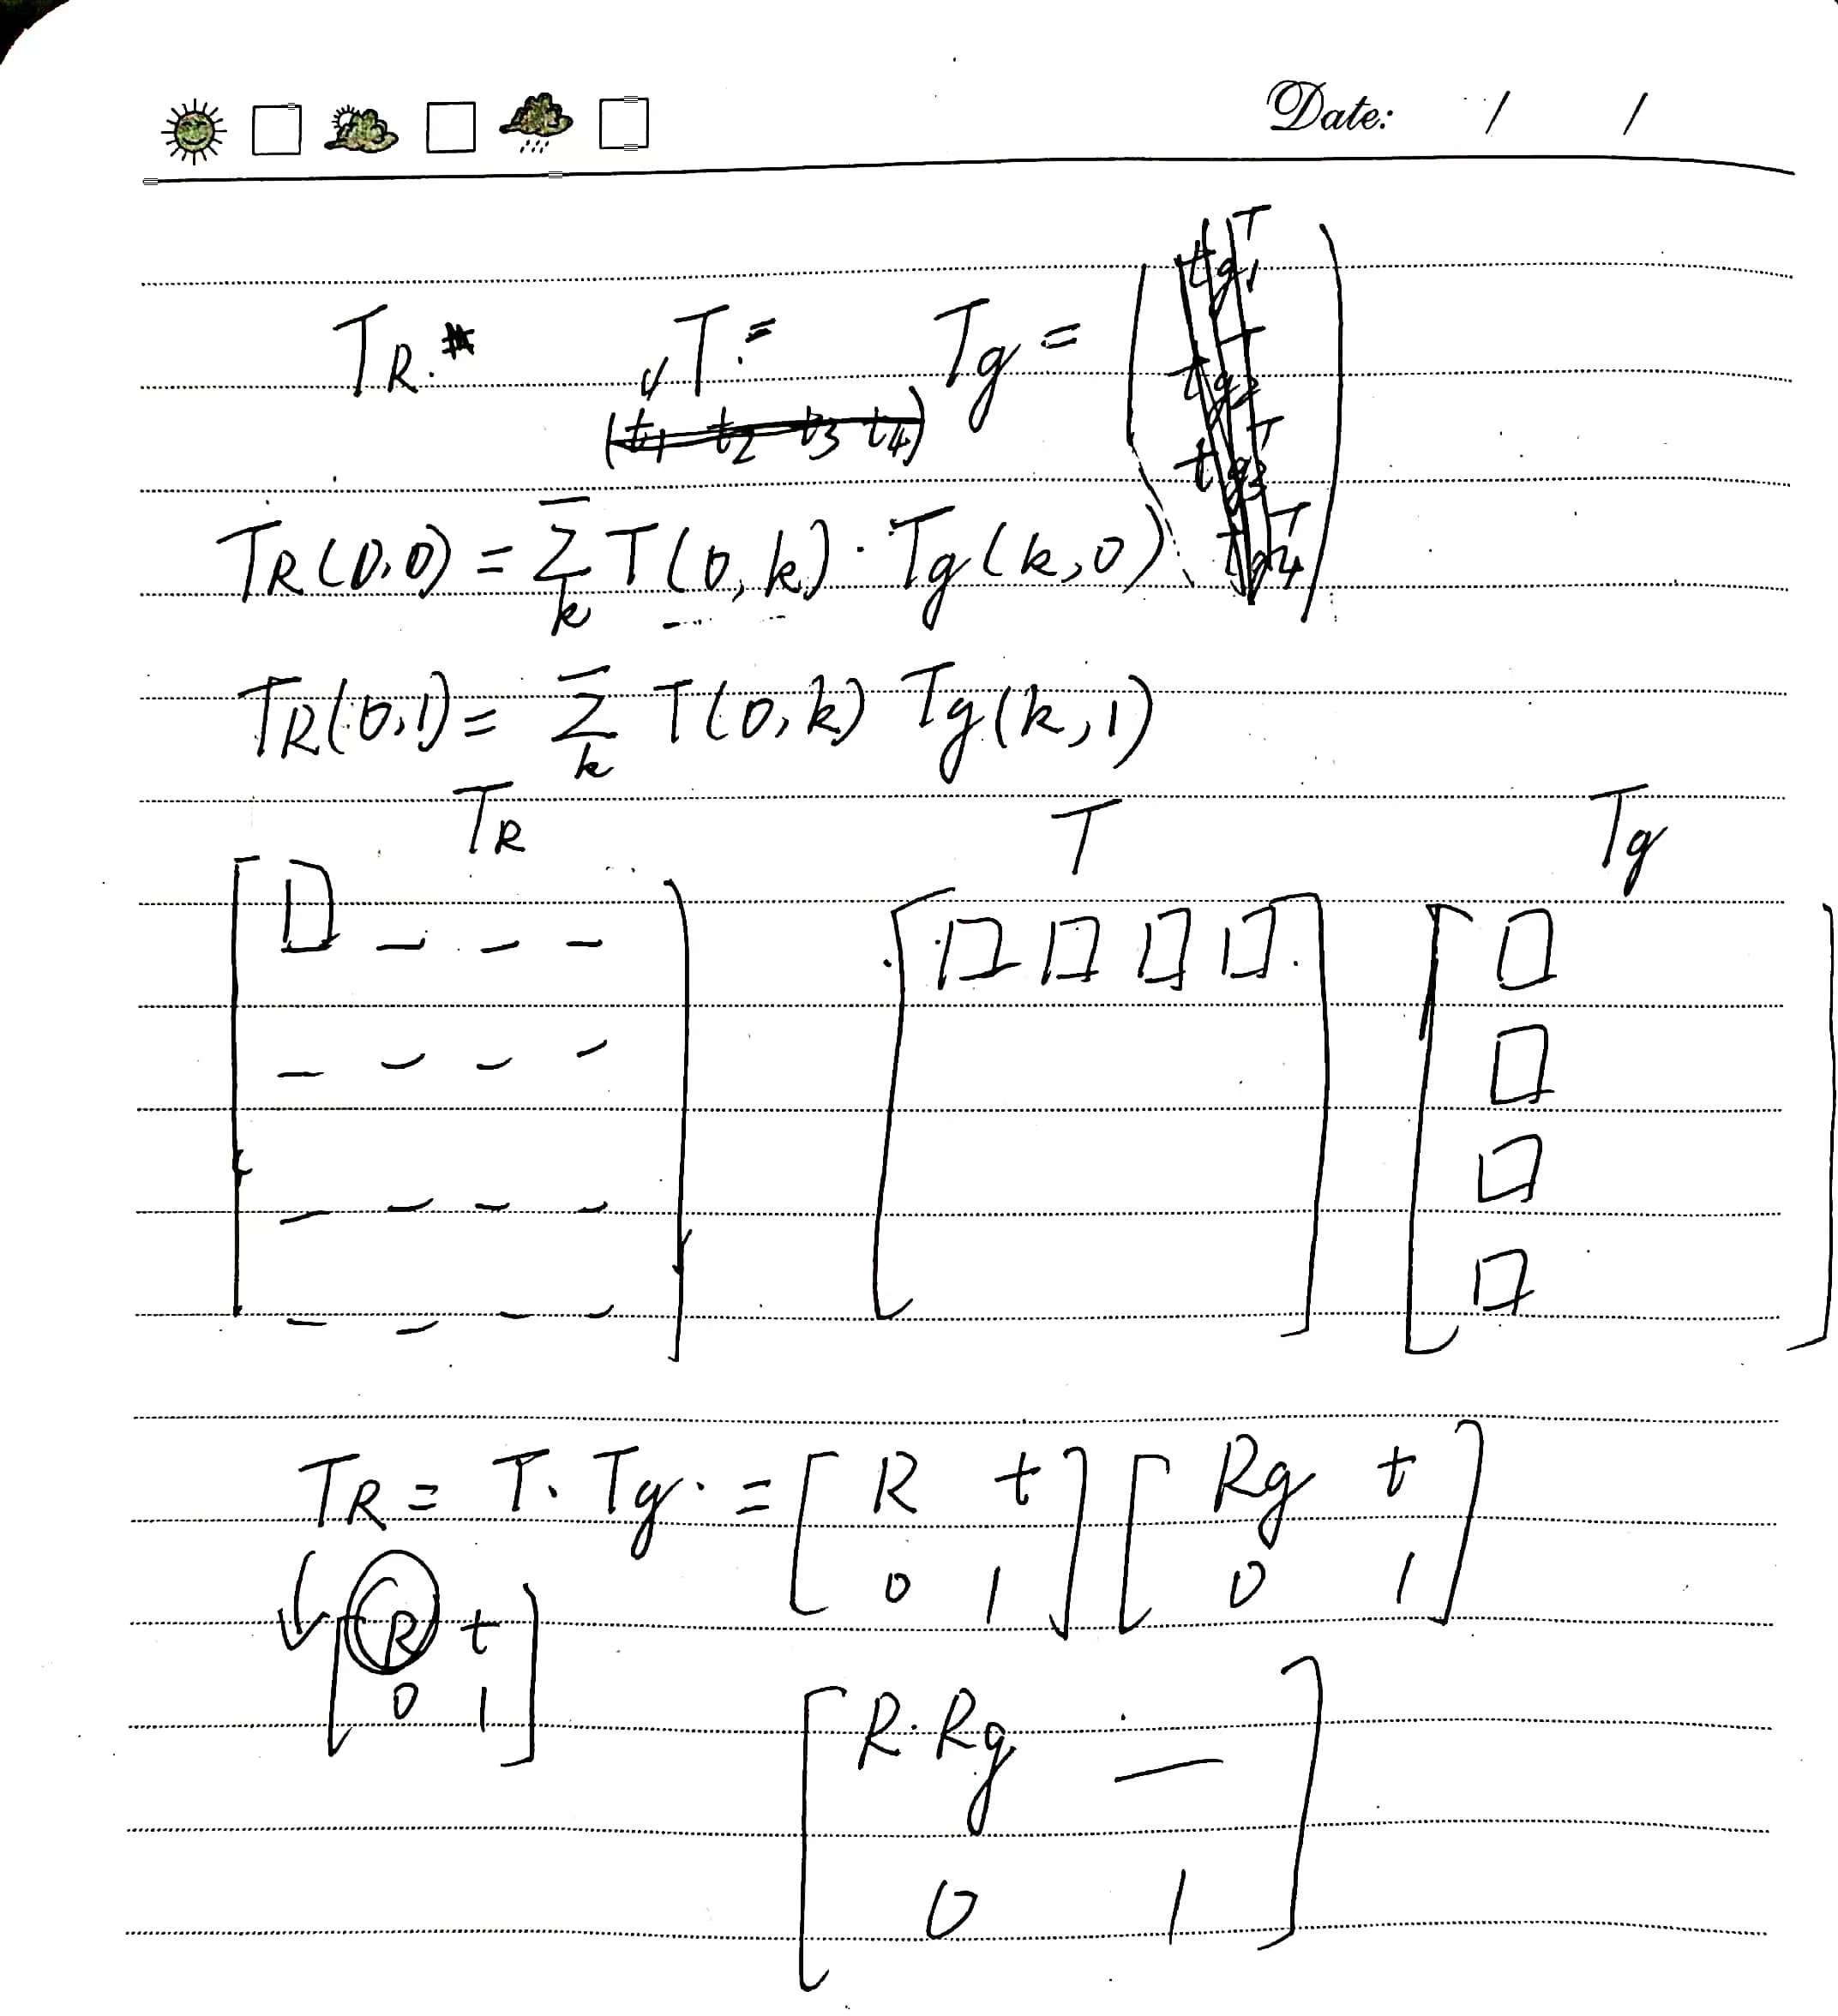 Date: / /
TR. T = Tg = ( tg1^T
(t1 t2 t3 t4) tg2^T
tg3^T
TR(0,0) = Σ_k T(0,k) · Tg(k,0) tg4^T )
TR(0,1) = Σ_k T(0,k) Tg(k,1)
TR T Tg
TR = T · Tg · = [ R t ] [ Rg t ]
0 1 0 1
[ R t ]
0 1
[ R·Rg — ]
0 1